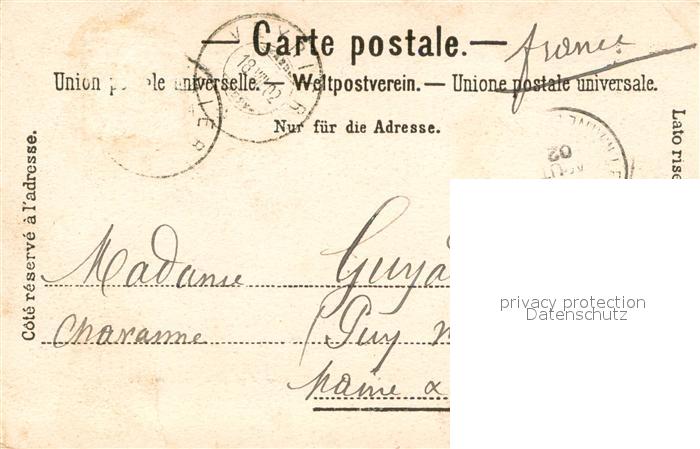 — Carte postale. — france
Union postale universelle. — Weltpostverein. — Unione postale universale.
Nur für die Adresse.
Côté réservé à l'adresse.
Lato rise
VIVIER
18 VIII 02
AOUT
02
Madame Guyä
Charasme Puy
Maine &
privacy protection
Datenschutz